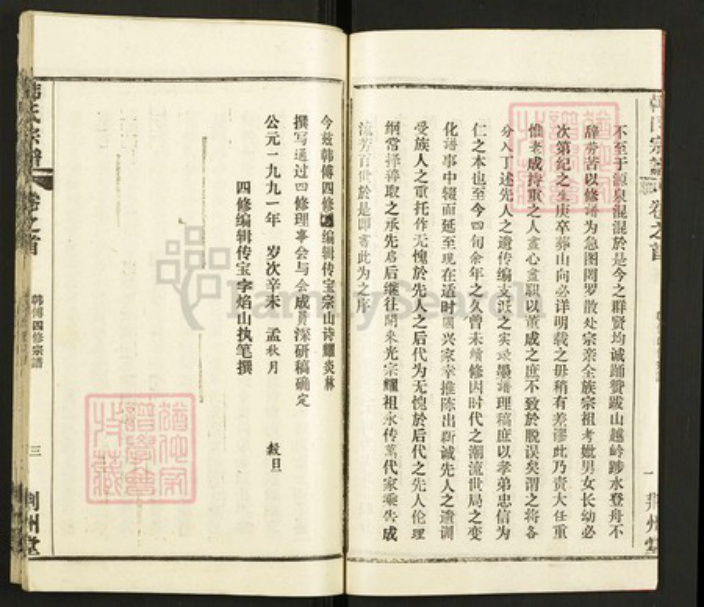 不至于源泉混混於是今之群贤均诚踊赞跋山越岭跡水登舟不
辞劳苦以修谱为急图罔罗散处宗亲全族宗祖考妣男女长幼必
次第纪之生庚卒葬山向必详明载之毋稍有差谬此乃责大任重
惟老成持重之人盡心盡职以董成之庶不致於脱误矣谓之将各
分入丁述先人之遗传编支派之实录墨谱理稿庶以孝弟忠信为
仁之本也至今四旬余年之久曾未续修因时代之潮流世局之变
化谱事中辍而延至现在适时国兴家幸推陈出新诚先人之遗训
受族人之重托作无愧於先人之后代为无愧於后代之先人伦理
纲常择粹取之承先启后继往開来光宗耀祖永传萬代家乘告成
流芳百世於是即書此为之序
今兹韩傅四修编辑传宝宗山诗耀炎林
撰写通过四修理事会与会成員深研稿确定
公元一九九一年 岁次辛未 孟秋月 穀旦
四修编辑传宝字焰山执笔撰
韩氏宗譜 卷之首
韩傅四修宗譜
三
荆州堂
宗譜 卷之首
一
荆州堂
猶他家譜學會特藏
FamilySearch